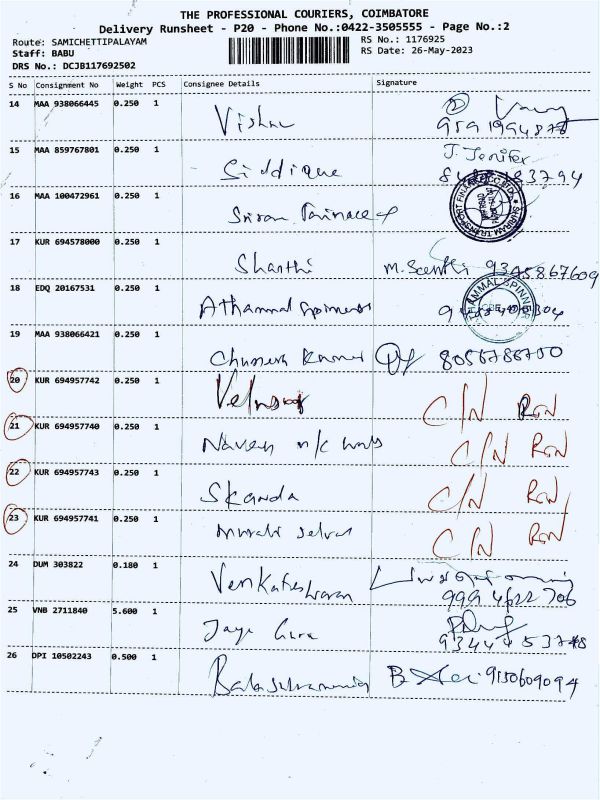 THE PROFESSIONAL COURIERS, COIMBATORE
Delivery Runsheet - P20 - Phone No.:0422-3505555 - Page No.:2
Route: SAMICHETTIPALAYAM
Staff: BABU
DRS No.: DCJB117692502
RS No.: 1176925
RS Date: 26-May-2023
S No Consignment No Weight PCS Consignee Details Signature
14 MAA 938066445 0.250 1 Vishnu
15 MAA 859767801 0.250 1 Siddique J. Jenifer
16 MAA 100472961 0.250 1 Sriram
17 KUR 694578000 0.250 1 Shanthi M. Senthi 9345867609
18 EDQ 20167531 0.250 1 Athammal Spinners
19 MAA 938066421 0.250 1 Kumar 8056786750
20 KUR 694957742 0.250 1 C/N RGN
21 KUR 694957740 0.250 1 Naveen m/c works C/N RGN
22 KUR 694957743 0.250 1 Skanda C/N RGN
23 KUR 694957741 0.250 1 Murali Selvas C/N RGN
24 DUM 303822 0.180 1 Venkateshwaran
999 4622 706
25 VNB 2711840 5.600 1 Jaya
26 DPI 10502243 0.500 1 Balasubramania 9150609094